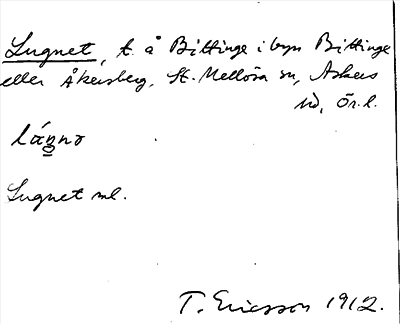 Lugnet, t. å Bittinge i byn Bittinge
eller Åkersberg, St. Mellösa sn, Askers
hd, Ör. l.
lúŋnə
Lugnet ml.
T. Ericsson 1912.